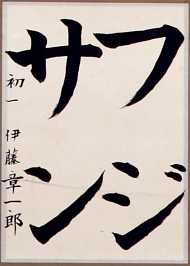 フジ
サン
初一 伊藤章一郎